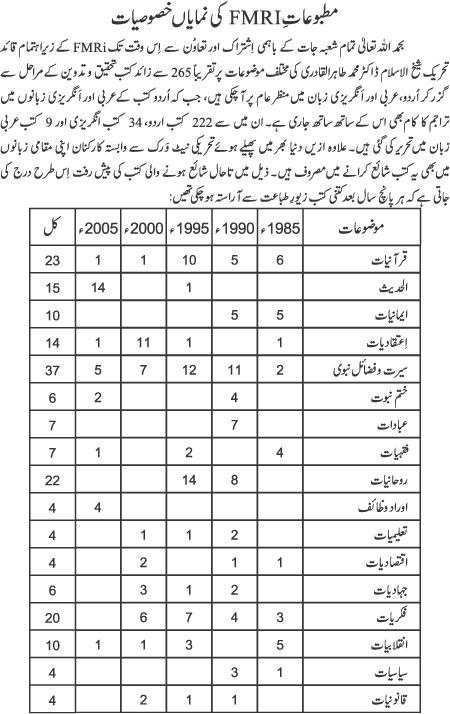 مطبوعاتِ FMRI کی نمایاں خصوصیات
بحمد اللہ تعالیٰ تمام شعبہ جات کے باہمی اِشتراک اور تعاوُن سے اِس وقت تک FMRi کے زیر اہتمام قائد
تحریک شیخ الاسلام ڈاکٹر محمد طاہر القادری کی مختلف موضوعات پر تقریباً 265 سے زائد کتب تحقیق و تدوین کے مراحل سے
گزر کر اُردو، عربی اور انگریزی زبان میں منظر عام پر آچکی ہیں، جب کہ اُردو کتب کے عربی اور انگریزی زبانوں میں
تراجم کا کام بھی اس کے ساتھ ساتھ جاری ہے۔ ان میں سے 222 کتب اردو، 34 کتب انگریزی اور 9 کتب عربی
زبان میں تحریر کی گئی ہیں۔ علاوہ ازیں دنیا بھر میں پھیلے ہوئے تحریکی نیٹ وَرک سے وابستہ کارکنان اپنی مقامی زبانوں
میں بھی یہ کتب شائع کرانے میں مصروف ہیں۔ ذیل میں تاحال شائع ہونے والی کتب کی پیش رفت اِس طرح درج کی
جاتی ہے کہ ہر پانچ سال بعد کتنی کتب زیورِ طباعت سے آراستہ ہوچکی تھیں:
موضوعات 1985ء 1990ء 1995ء 2000ء 2005ء کل
قرآنیات 6 5 10 1 1 23
الحدیث 1 14 15
ایمانیات 5 5 10
اِعتقادیات 1 1 11 1 14
سیرت و فضائل نبوی 2 11 12 7 5 37
ختم نبوت 4 2 6
عبادات 7 7
فقہیات 4 2 1 7
روحانیات 8 14 22
اوراد و وظائف 4 4
تعلیمیات 2 1 1 4
اقتصادیات 1 1 2 4
جہادیات 2 1 3 6
فکریات 3 4 7 6 20
انقلابیات 5 3 1 1 10
سیاسیات 1 3 4
قانونیات 1 1 2 4